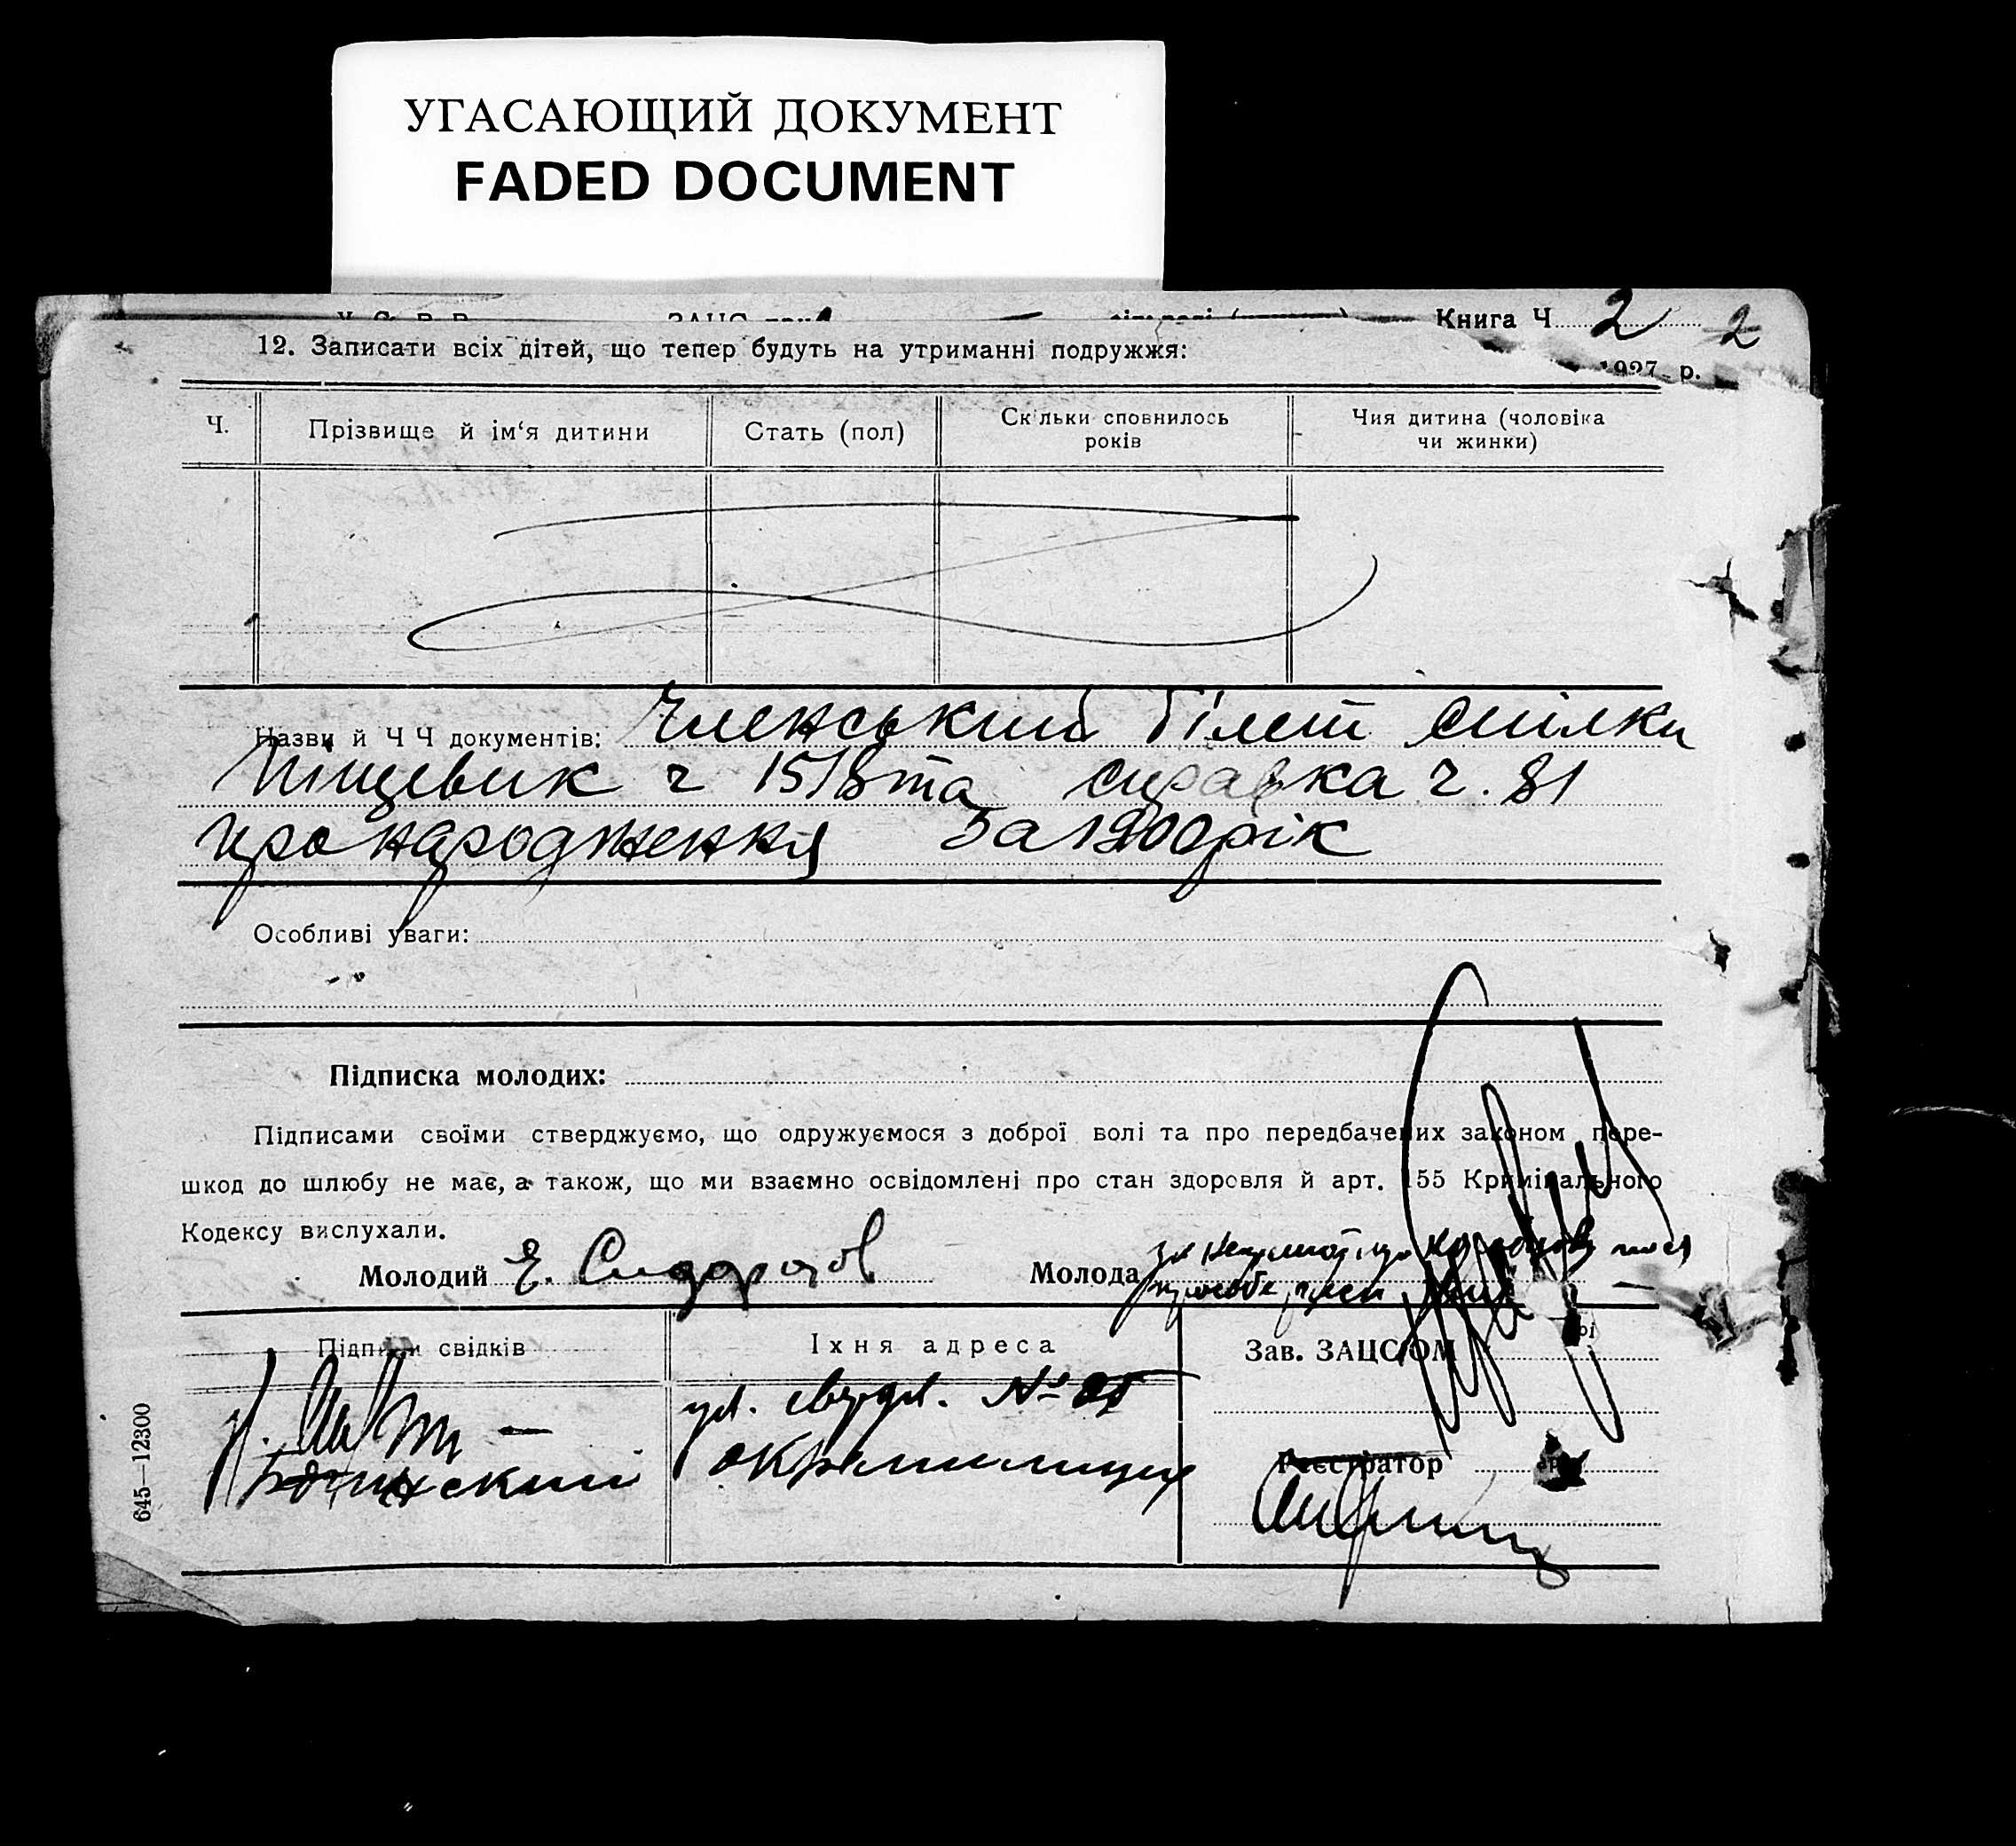 УГАСАЮЩИЙ ДОКУМЕНТ
FADED DOCUMENT
Книга Ч. 2 2
1927 р.
12. Записати всіх дітей, що тепер будуть на утриманні подружжя:
Ч.
Прізвище й ім'я дитини
Стать (пол)
Скільки сповнилось років
Чия дитина (чоловіка чи жинки)
Назви й Ч Ч документів: Членський білет спілки
Піщевик ч 1518 та справка ч. 81
про народження за 1900 рік
Особливі уваги:
Підписка молодих:
Підписами своїми стверджуємо, що одружуємося з доброї волі та про передбачених законом пере-
шкод до шлюбу не має, а також, що ми взаємно освідомлені про стан здоровля й арт. 155 Кримінального
Кодексу вислухали.
Молодий Є. Сидоров
Молода
Підписи свідків
Їхня адреса
Зав. ЗАЦС'ОМ
ул. №
Реєстратор
645—12300